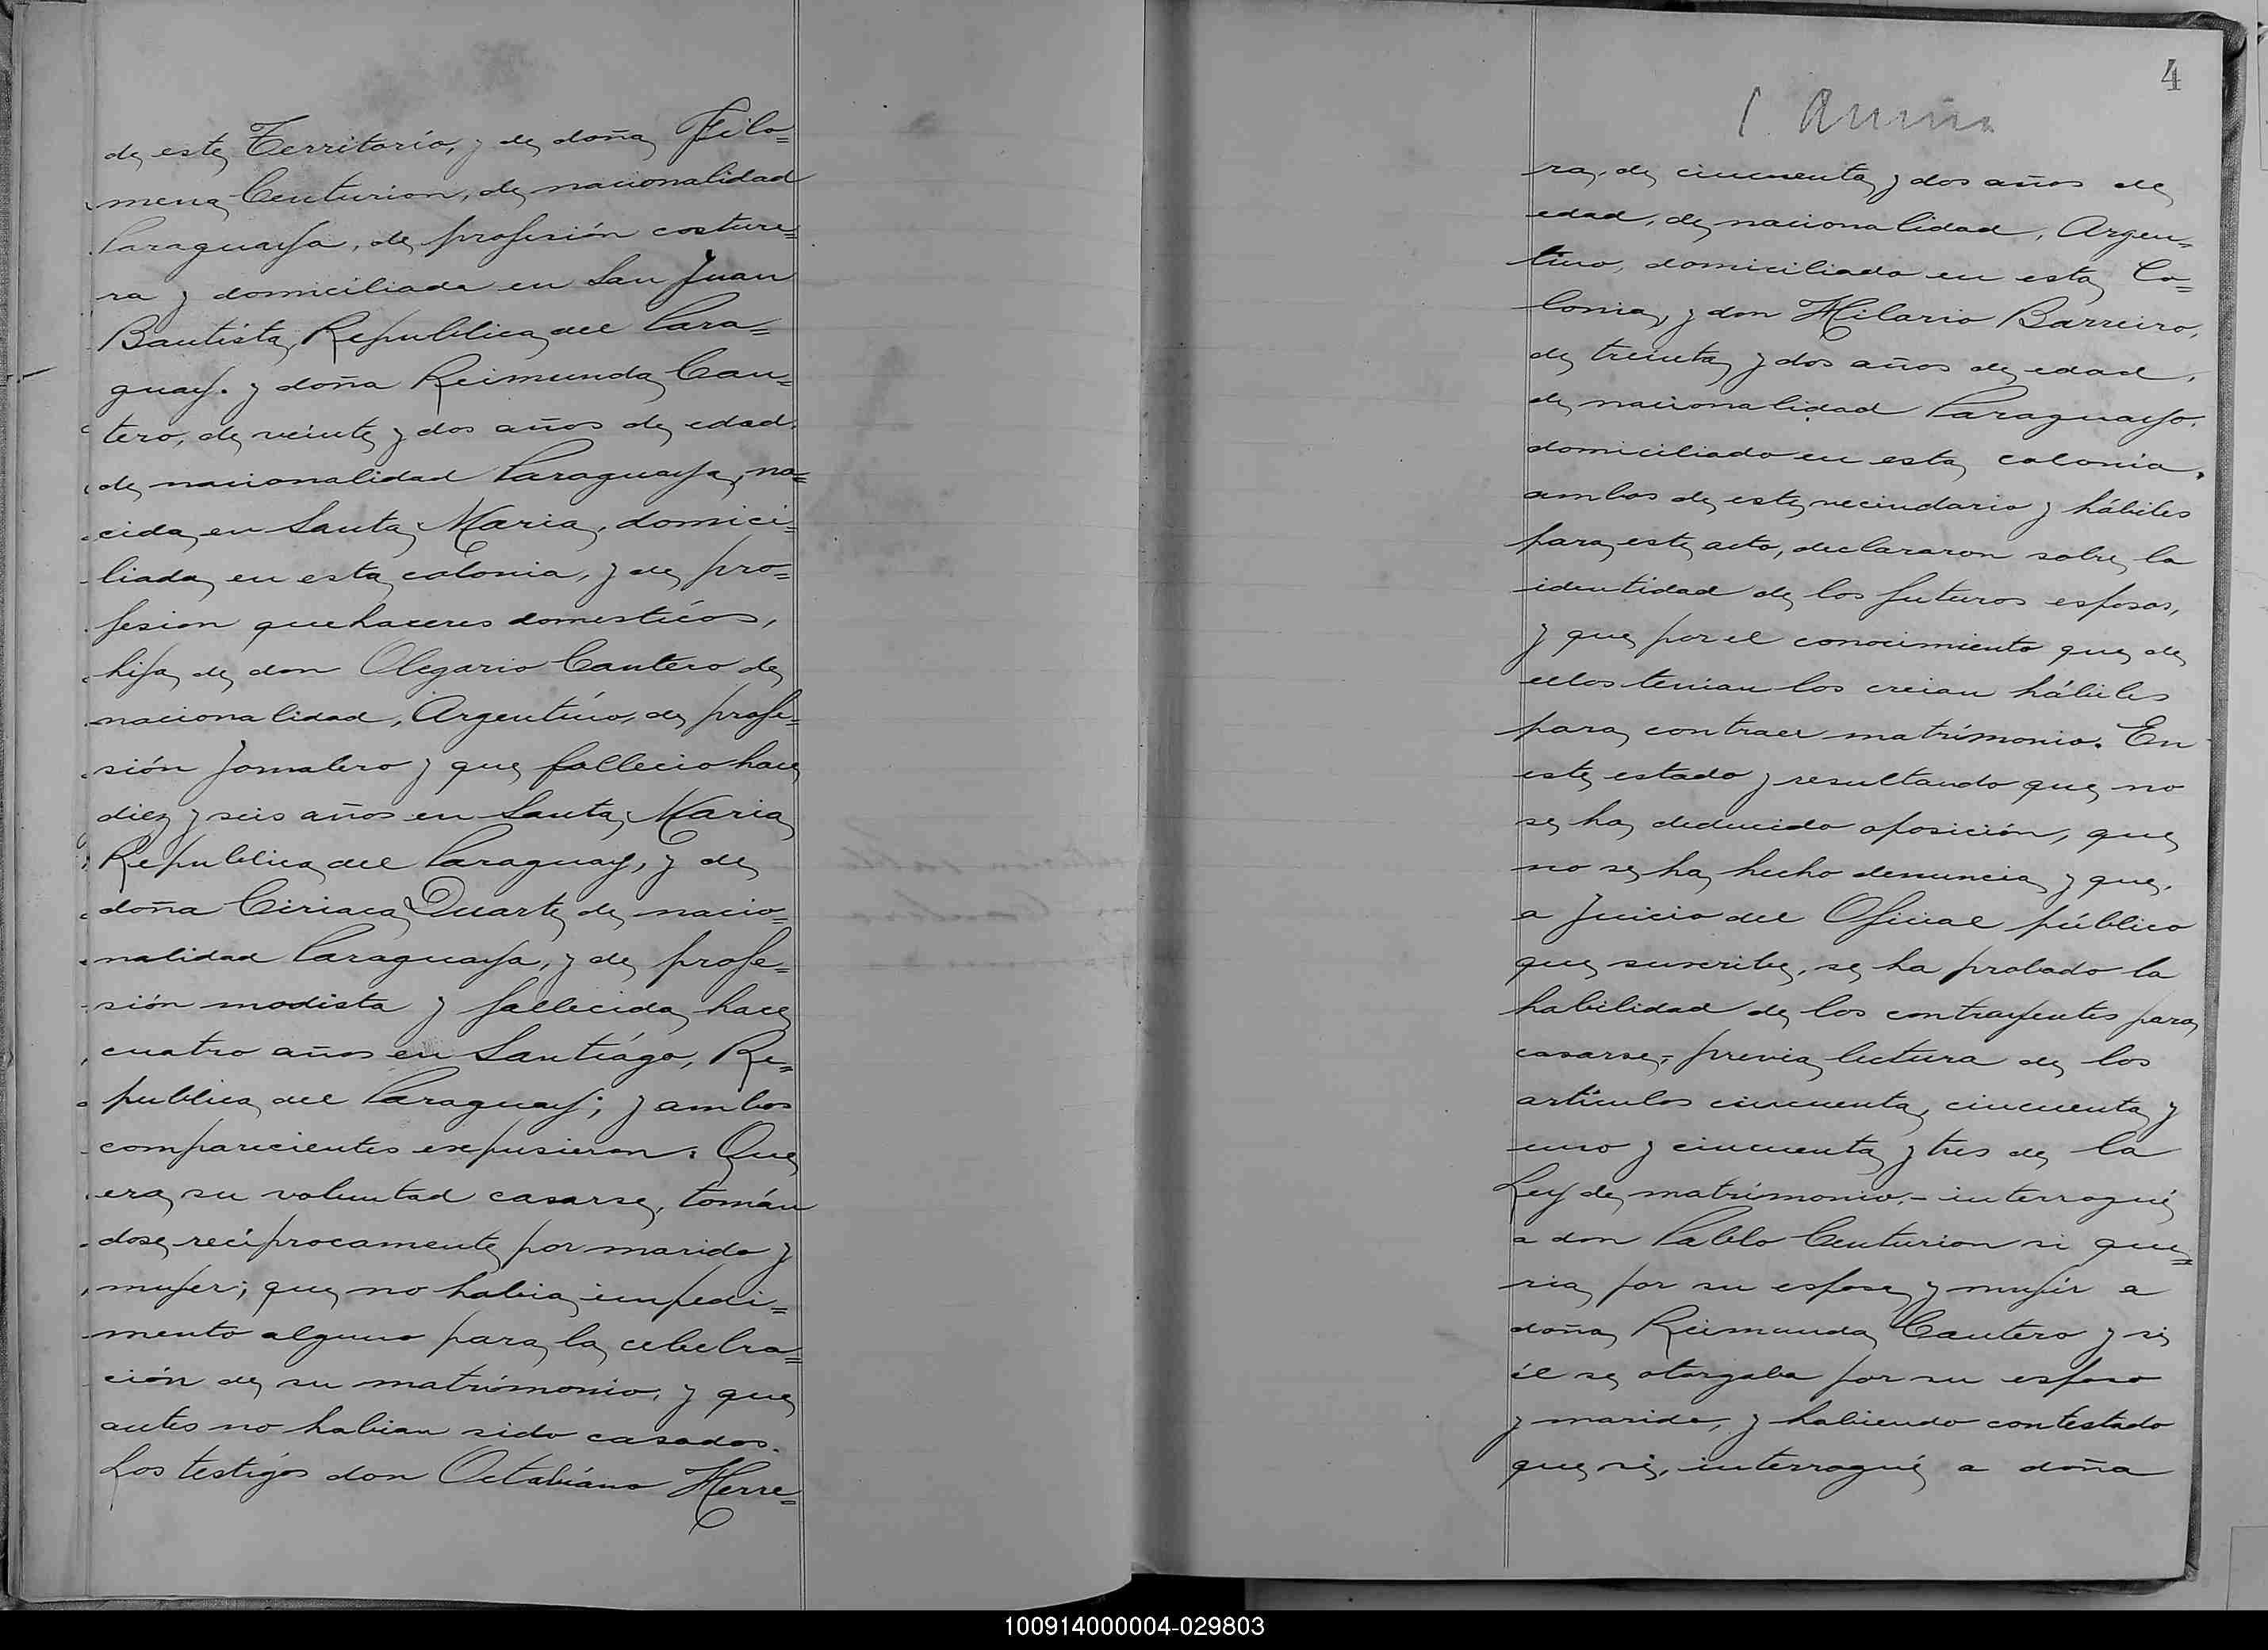 de este Territorio, y de doña Filo=
mena Centurion, de nacionalidad
Paraguaya, de profesión costure=
ra y domiciliada en San Juan
Bautista, Republica del Para=
guay. y doña Reimunda Can=
tero, de veinte y dos años de edad,
de nacionalidad Paraguaya, na=
cida en Santa Maria, domici=
liada en esta colonia, y de pro=
fesion quehaceres domesticos,
hija de don Olegario Cantero de
nacionalidad, Argentino, de profe=
sión Jornalero y que fallecio hace
diez y seis años en Santa Maria
Republica del Paraguay, y de
doña Ciriaca Duarte de nacio=
nalidad Paraguaya, y de profe=
sión modista y fallecida hace
cuatro años en Santiago, Re=
publica del Paraguay; y ambos
comparecientes expusieron: Que
era su voluntad casarse, tomán
dose reciprocamente por marido y
mujer; que no habia impedi=
mento alguno para la celebra=
ción de su matrimonio, y que
antes no habian sido casados.
Los testigos don Octabiano Herre=
4
ra, de cincuenta y dos años de
edad, de nacionalidad, Argen=
tino, domiciliado en esta Co=
lonia, y don Hilario Barreiro,
de treinta y dos años de edad,
de nacionalidad Paraguayo,
domiciliado en esta colonia,
ambos de este vecindario y hábiles
para este acto, declararon sobre la
identidad de los futuros esposos,
y que por el conocimiento que de
ellos tenian los creian hábiles
para contraer matrimonio. En
este estado y resultando que no
se ha deducido oposición, que
no se ha hecho denuncia y que,
a Juicio del Oficial público
que suscribe, se ha probado la
habilidad de los contrayentes para
casarse,= previa lectura de los
artículos cincuenta, cincuenta y
uno y cincuenta y tres de la
Ley de matrimonio,- interrogué
a don Pablo Centurion si que=
ria por su esposa y mujer a
doña Reimunda Cantero y si
él se otorgaba por su esposo
y marido, y habiendo contestado
que si, interrogué a doña
100914000004-029803